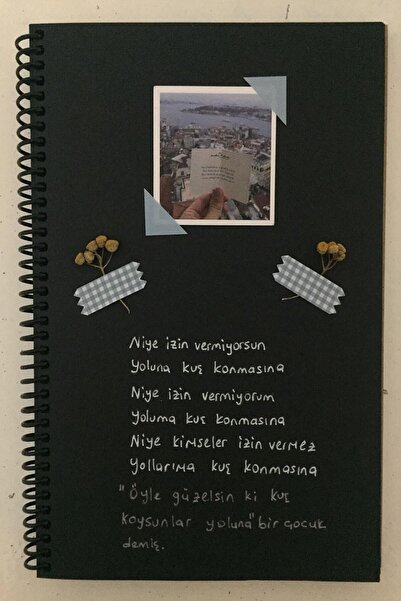 Niye izin vermiyorsun
Yoluna kuş konmasına
Niye izin vermiyorum
Yoluma kuş konmasına
Niye kimseler izin vermez
Yollarıma kuş konmasına
"Öyle güzelsin ki kuş
koysunlar yoluna" bir çocuk
demiş.